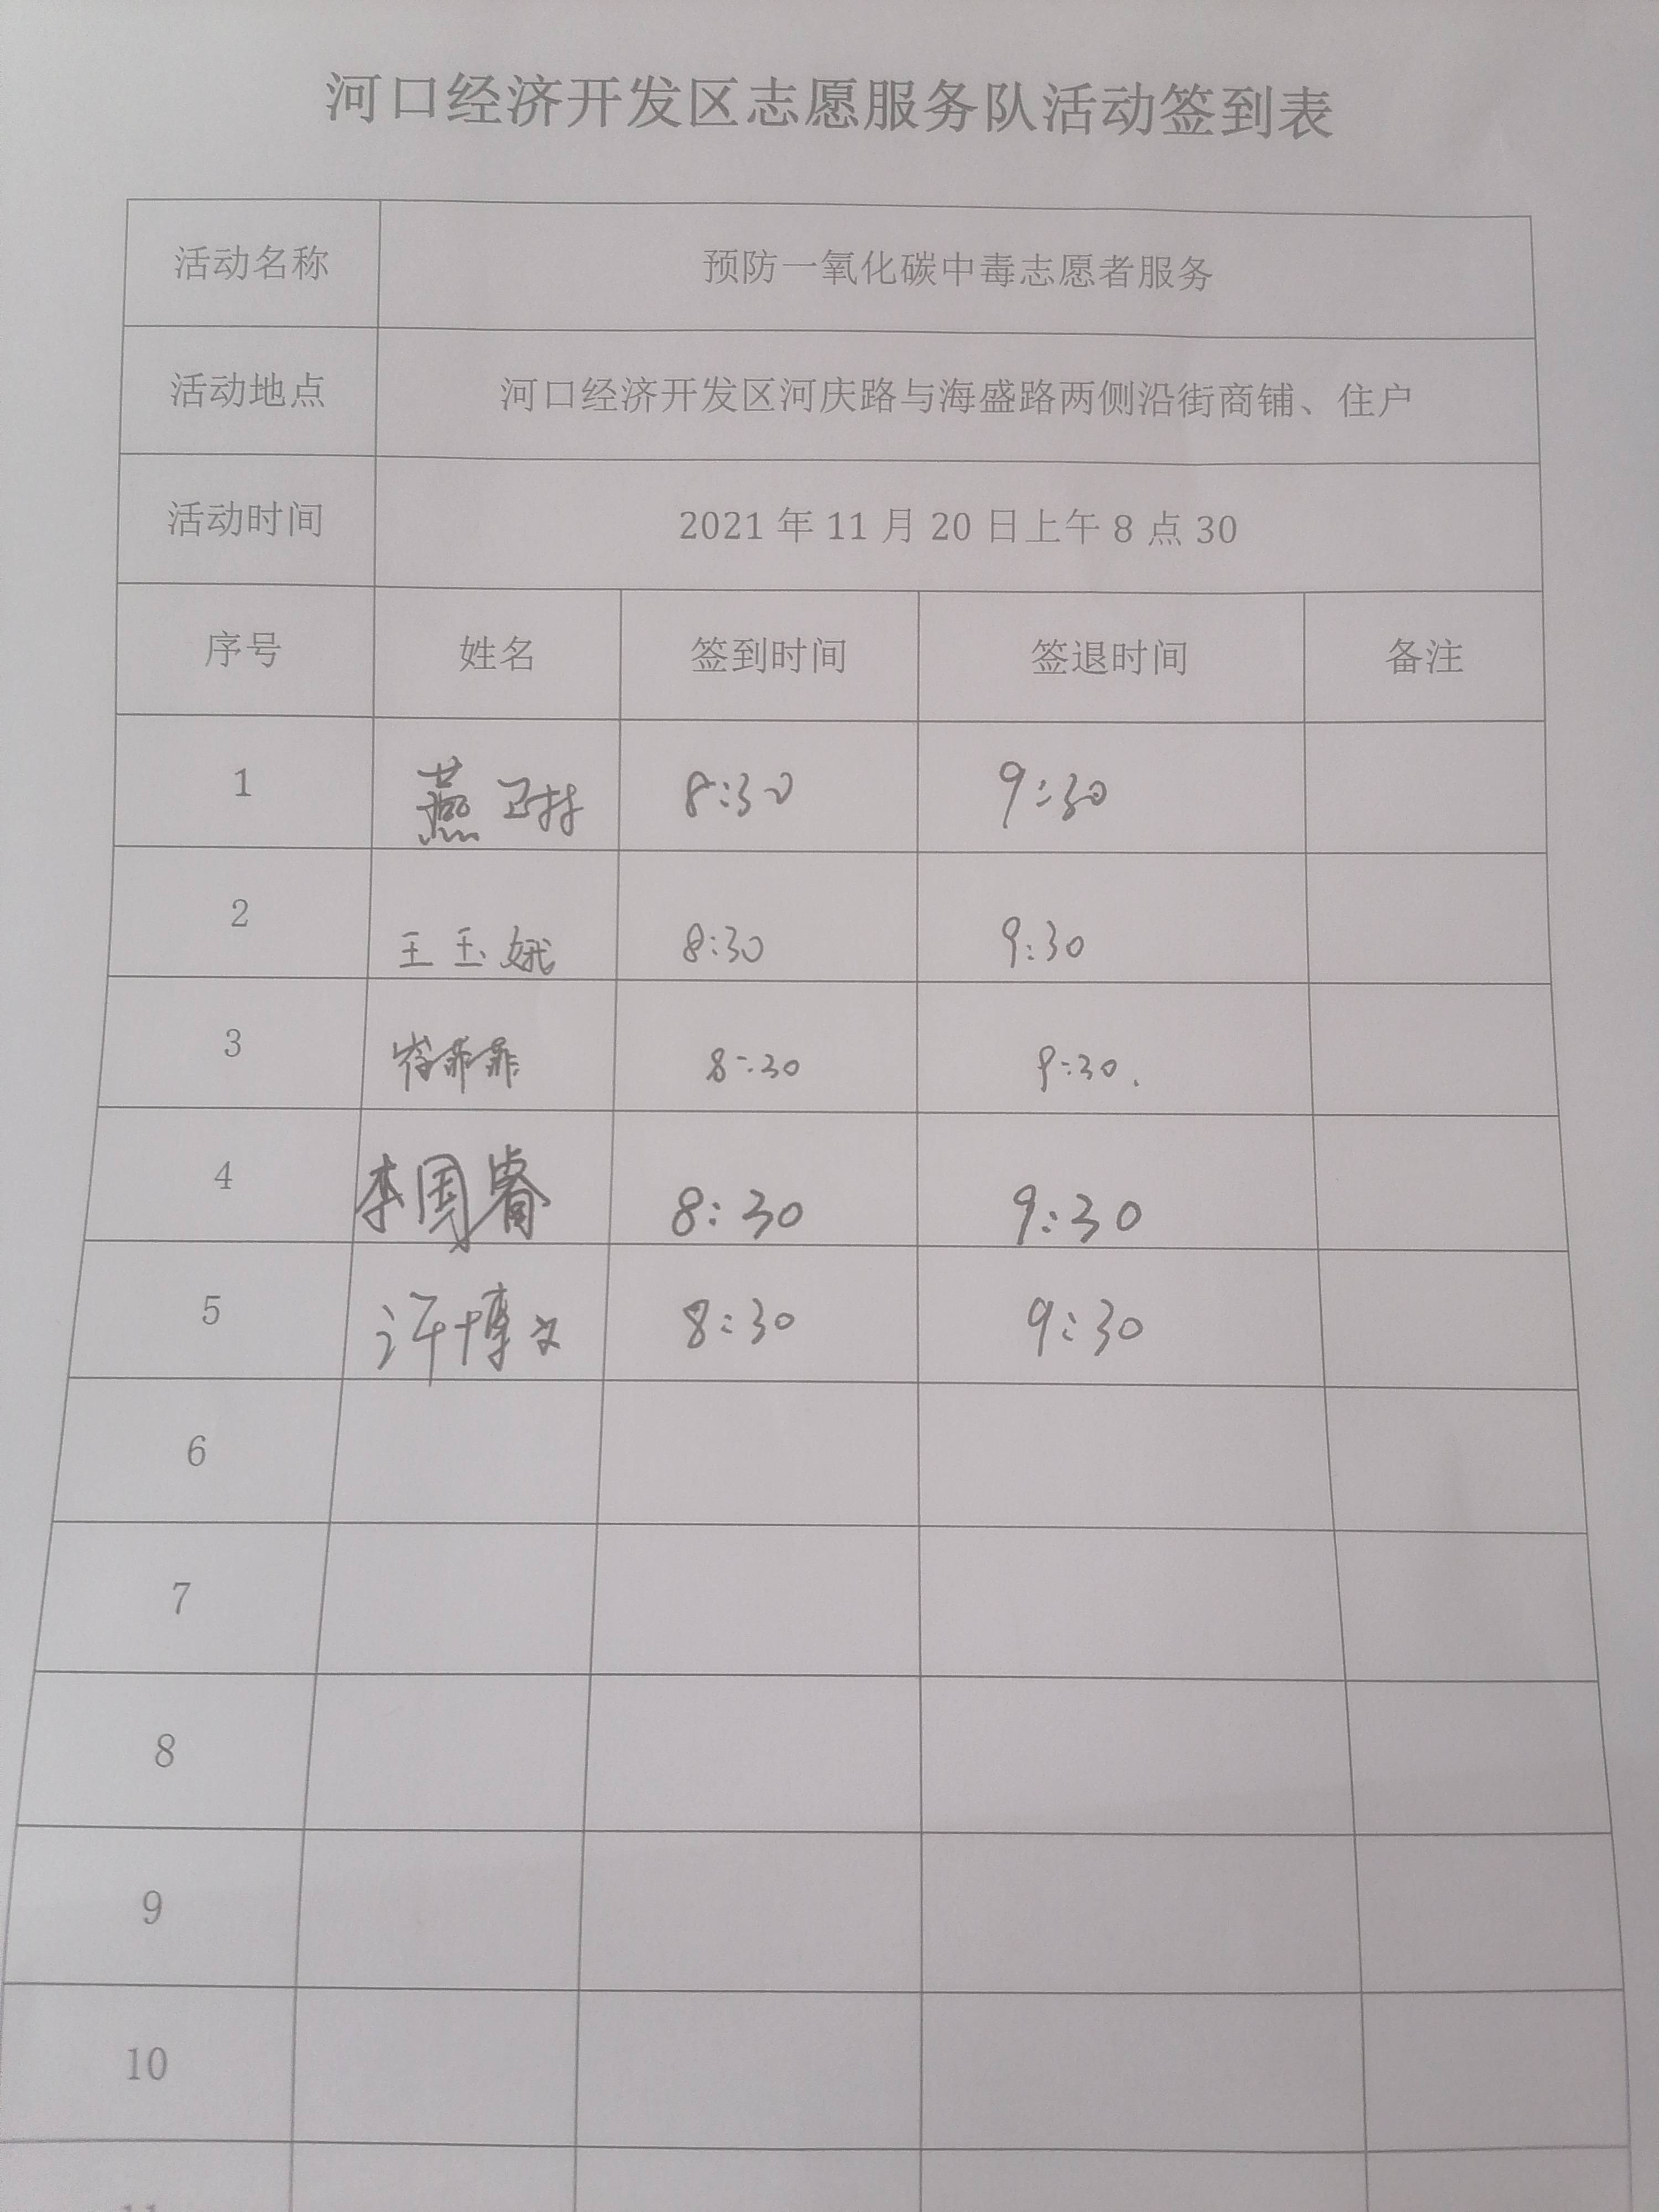 河口经济开发区志愿服务队活动签到表
活动名称 预防一氧化碳中毒志愿者服务
活动地点 河口经济开发区河庆路与海盛路两侧沿街商铺、住户
活动时间 2021年11月20日上午8点30
序号 姓名 签到时间 签退时间 备注
1 燕卫 8:30 9:30
2 王玉娥 8:30 9:30
3 崔菲菲 8:30 9:30.
4 李国睿 8:30 9:30
5 许博文 8:30 9:30
6
7
8
9
10